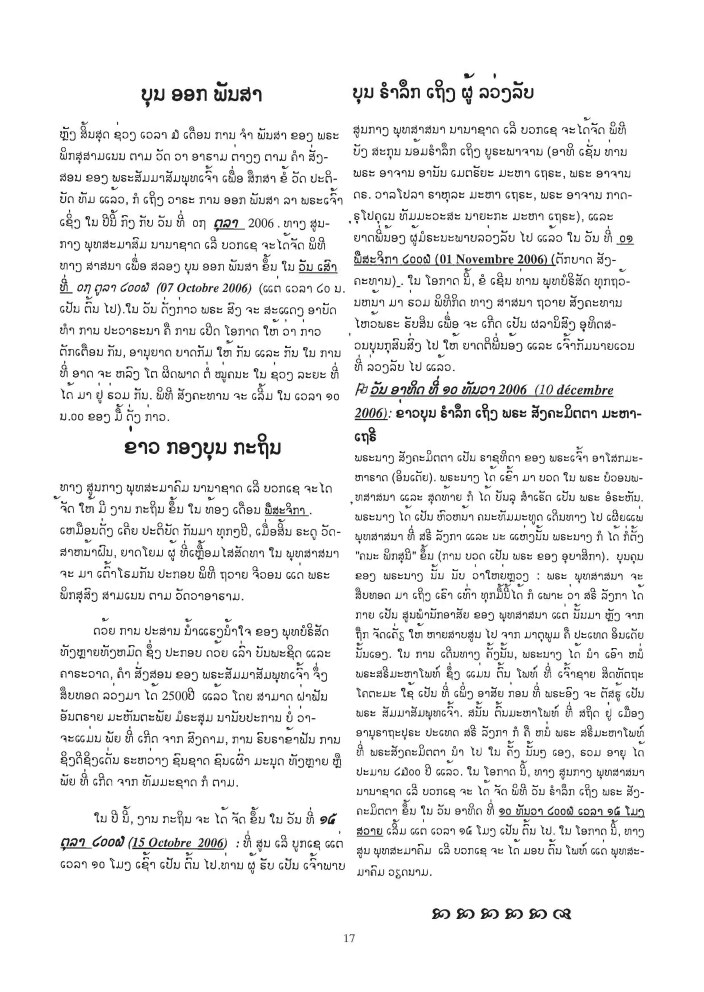 ບຸນ ອອກ ພັນສາ
ຫຼັງ ສິ້ນສຸດ ຊ່ວງ ເວລາ ໓ ເດືອນ ການ ຈຳ ພັນສາ ຂອງ ພຣະ
ພິກສຸສາມເນນ ຕາມ ວັດ ວາ ອາຣາມ ຕ່າງໆ ຕາມ ຄຳ ສັ່ງ-
ສອນ ຂອງ ພຣະສັມມາສັມພຸທເຈົ້າ ເພື່ອ ສຶກສາ ຂໍ້ ວັດ ປະຕິ-
ບັດ ທັມ ແລ້ວ, ກໍ ເຖິງ ວາຣະ ການ ອອກ ພັນສາ ລາ ພຣະເຈົ້າ
ເຊິ່ງ ໃນ ປີນີ້ ກົງ ກັບ ວັນ ທີ່ ໐໗ ຕຸລາ 2006 . ທາງ ສູນ-
ກາງ ພຸທສະມາຄົມ ນານາຊາດ ເລີ ບວກເຊ ຈະໄດ້ຈັດ ພິທີ
ທາງ ສາສນາ ເພື່ອ ສລອງ ບຸນ ອອກ ພັນສາ ຂຶ້ນ ໃນ ວັນ ເສົາ
ທີ່ ໐໗ ຕຸລາ ໒໐໐໖ (07 Octobre 2006) (ແຕ່ ເວລາ ໒໐ ນ.
ເປັນ ຕົ້ນ ໄປ).ໃນ ວັນ ດັ່ງກ່າວ ພຣະ ສົງ ຈະ ສະແດງ ອາບັດ
ທຳ ການ ປະວາຣະນາ ຄື ການ ເປີດ ໂອກາດ ໃຫ້ ວ່າ ກ່າວ
ຕັກເຕືອນ ກັນ, ອານຸຍາດ ບາດກັມ ໃຫ້ ກັນ ແລະ ກັນ ໃນ ການ
ທີ່ ອາດ ຈະ ຫລົງ ໂຕ ຜິດພາດ ຕໍ່ ໝູ່ຄນະ ໃນ ຊ່ວງ ລະຍະ ທີ່
ໄດ້ ມາ ຢູ່ ຮ່ວມ ກັນ. ພິທີ ສັງຄະທານ ຈະ ເລີ້ມ ໃນ ເວລາ ໑໐
ນ.໐໐ ຂອງ ມື້ ດັ່ງ ກ່າວ.
ຂາວ ກອງບຸນ ກະຖິນ
ທາງ ສູນກາງ ພຸທສະມາຄົມ ນານາຊາດ ເລີ ບວກເຊ ຈະໄດ້
ຈັດ ໃຫ້ ມີ ງານ ກະຖິນ ຂຶ້ນ ໃນ ທ້ອງ ເດືອນ ພຶສະຈິກາ .
ເໝືອນດັ່ງ ເຄີຍ ປະຕິບັດ ກັນມາ ທຸກໆປີ, ເມື່ອສິ້ນ ຣະດູ ວັດ-
ສາຫນ້າຝົນ, ຍາດໂຍມ ຜູ້ ທີ່ເຫຼື້ອມໄສສັດທາ ໃນ ພຸທສາສນາ
ຈະ ມາ ເຕົ້າໂຮມກັນ ປະກອບ ພິທີ ຖວາຍ ຈີວອນ ແດ່ ພຣະ
ພິກສຸສົງ ສາມເນນ ຕາມ ວັດວາອາຣາມ.
ດ້ວຍ ການ ປະສານ ນ້ຳແຮງນ້ຳໃຈ ຂອງ ພຸທບໍຣິສັດ
ທັງຫຼາຍທັງຫມົດ ຊຶ່ງ ປະກອບ ດ້ວຍ ເລົ່າ ບັນພະຊິດ ແລະ
ຄາຣະວາດ, ຄຳ ສັ່ງສອນ ຂອງ ພຣະສັມມາສັມພຸທເຈົ້າ ຈຶ່ງ
ສືບທອດ ລ່ວງມາ ໄດ້ 2500ປີ ແລ້ວ ໂດຍ ສາມາດ ຝ່າຟັນ
ອັນຕຣາຍ ມະຫັນຕະພັຍ ມໍຣະສຸມ ນານັບປະການ ບໍ່ ວ່າ-
ຈະແມ່ນ ພັຍ ທີ່ ເກີດ ຈາກ ສົງຄາມ, ການ ຣົບຣາຂ້າຟັນ ການ
ຊິງດີຊິງເດັ່ນ ຣະຫວ່າງ ຊົນຊາດ ຊົນເຜົ່າ ມະນຸດ ທັງຫາຍ ຫຼື
ພັຍ ທີ່ ເກີດ ຈາກ ທັມມະຊາດ ກໍ ຕາມ.
ໃນ ປີ ນີ້, ງານ ກະຖິນ ຈະ ໄດ້ ຈັດ ຂຶ້ນ ໃນ ວັນ ທີ່ ໑໕
ຕຸລາ ໒໐໐໖ (15 Octobre 2006) : ທີ່ ສູນ ເລີ ບູກເຊ ແຕ່
ເວລາ ໑໐ ໂມງ ເຊົ້າ ເປັນ ຕົ້ນ ໄປ.ທ່ານ ຜູ້ ຮັບ ເປັນ ເຈົ້າພາບ
ບຸນ ຣຳລຶກ ເຖິງ ຜູ້ ລ່ວງລັບ
ສູນກາງ ພຸທສາສນາ ນານາຊາດ ເລີ ບວກເຊ ຈະໄດ້ຈັດ ພິທີ
ບັງ ສະກຸນ ນ້ອມຣຳລຶກ ເຖິງ ບູຣະພາຈານ (ອາທິ ເຊັ່ນ ທ່ານ
ພຣະ ອາຈານ ອານັນ ເມຕຣັຍະ ມະຫາ ເຖຣະ, ພຣະ ອາຈານ
ດຣ. ວາລໂປລາ ຣາຫຸລະ ມະຫາ ເຖຣະ, ພຣະ ອາຈານ ກາດ-
ຸຣຸໂປຄຸເນ ທັມມະວະສະ ນາຍະກະ ມະຫາ ເຖຣະ), ແລະ
ຍາດພີ່ນ້ອງ ຜູ້ມໍຣະນະພາບລ່ວງລັບ ໄປ ແລ້ວ ໃນ ວັນ ທີ່ ໐໑
ພຶສະຈິກາ ໒໐໐໖ (01 Novembre 2006) (ຕັກບາດ ສັງ-
ຄະທານ) . ໃນ ໂອກາດ ນີ້, ຂໍ ເຊີນ ທ່ານ ພຸທບໍຣິສັດ ທຸກຖ້ວ-
ນຫນ້າ ມາ ຮ່ວມ ພິທີກິດ ທາງ ສາສນາ ຖວາຍ ສັງຄະທານ
ໄຫວ້ພຣະ ຮັບສິນ ເພື່ອ ຈະ ເກີດ ເປັນ ຜລານິສົງ ອຸທິດສ່-
ວນບຸນກຸສົນສົ່ງ ໄປ ໃຫ້ ຍາດຕິພີ່ນ້ອງ ແລະ ເຈົ້າກັມນາຍເວນ
ທີ່ ລ່ວງລັບ ໄປ ແລ້ວ.
ວັນ ອາທິດ ທີ່ ໑໐ ທັນວາ 2006 (10 décembre
2006): ຂ່າວບຸນ ຣຳລຶກ ເຖິງ ພຣະ ສັງຄະມິຕຕາ ມະຫາ-
ເຖຣີ
ພຣະນາງ ສັງຄະມິຕຕາ ເປັນ ຣາຊທິດາ ຂອງ ພຣະເຈົ້າ ອາໂສກມະ-
ຫາຣາດ (ອິນເດັຍ). ພຣະນາງ ໄດ້ ເຂົ້າ ມາ ບວດ ໃນ ພຣະ ບໍວອນພ-
ຸທສາສນາ ແລະ ສຸດທ້າຍ ກໍ ໄດ້ ບັນລຸ ສຳເຣັດ ເປັນ ພຣະ ອໍຣະຫັນ.
ພຣະນາງ ໄດ້ ເປັນ ຫົວຫນ້າ ຄນະທັມມະທູດ ເດີນທາງ ໄປ ເຜີຍແຜ່
ພຸທສາສນາ ທີ່ ສຣີ ລັງກາ ແລະ ນະ ແຫ່ງນັ້ນ ພຣະນາງ ກໍ ໄດ້ ກໍ່ຕັ້ງ
"ຄນະ ພິກສຸນີ" ຂຶ້ນ (ການ ບວດ ເປັນ ພຣະ ຂອງ ອຸບາສິກາ). ບຸນຄຸນ
ຂອງ ພຣະນາງ ນັ້ນ ນັບ ວ່າໃຫຍ່ຫຼວງ : ພຣະ ພຸທສາສນາ ຈະ
ສືບທອດ ມາ ເຖິງ ເຮົາ ເທົ່າ ທຸກມື້ນີ້ໄດ້ ກໍ ເພາະ ວ່າ ສຣີ ລັງກາ ໄດ້
ກາຍ ເປັນ ສູນພຳນັກອາສັຍ ຂອງ ພຸທສາສນາ ແຕ່ ນັ້ນມາ ຫຼັງ ຈາກ
ຖືກ ຈັດເຄັ່ງ ໃຫ້ ຫາຍສາບສູນ ໄປ ຈາກ ມາຕຸພູມ ຄື ປະເທດ ອິນເດັຍ
ນັ້ນເອງ. ໃນ ການ ເດີນທາງ ຄັ້ງນັ້ນ, ພຣະນາງ ໄດ້ ນຳ ເອົາ ຫນໍ່
ພຣະສຣີມະຫາໂພທ໌ ຊຶ່ງ ແມ່ນ ຕົ້ນ ໂພທ໌ ທີ່ ເຈົ້າຊາຍ ສິດທັດຖະ
ໂຄຕະມະ ໃຊ້ ເປັນ ທີ່ ເພິ່ງ ອາສັຍ ກ່ອນ ທີ່ ພຣະອົງ ຈະ ຕັສຣູ້ ເປັນ
ພຣະ ສັມມາສັມພຸທເຈົ້າ. ສນັ້ນ ຕົ້ນມະຫາໂພທ໌ ທີ່ ສຖິດ ຢູ່ ເມືອງ
ອານຸຣາຖະປຸຣະ ປະເທດ ສຣີ ລັງກາ ກໍ ຄື ຫນໍ່ ພຣະ ສຣີມະຫາໂພທ໌
ທີ່ ພຣະສັງຄະມິຕຕາ ນຳ ໄປ ໃນ ຄັ້ງ ນັ້ນໆ ເອງ, ຮວມ ອາຍຸ ໄດ້
ປະມານ ໒໓໐໐ ປີ ແລ້ວ. ໃນ ໂອກາດ ນີ້, ທາງ ສູນກາງ ພຸທສາສນາ
ນານາຊາດ ເລີ ບວກເຊ ຈະ ໄດ້ ຈັດ ພິທີ ວັນ ຣຳລຶກ ເຖິງ ພຣະ ສັງ-
ຄະມິຕຕາ ຂຶ້ນ ໃນ ວັນ ອາທິດ ທີ່ ໑໐ ທັນວາ ໒໐໐໖ ເວລາ ໑໕ ໂມງ
ສວາຍ ເລີ້ມ ແຕ່ ເວລາ ໑໕ ໂມງ ເປັນ ຕົ້ນ ໄປ. ໃນ ໂອກາດ ນີ້, ທາງ
ສູນ ພຸທສະມາຄົມ ເລີ ບວກເຊ ຈະ ໄດ້ ມອບ ຕົ້ນ ໂພທ໌ ແດ່ ພຸທສະ-
ມາຄົມ ວຽດນາມ.
17